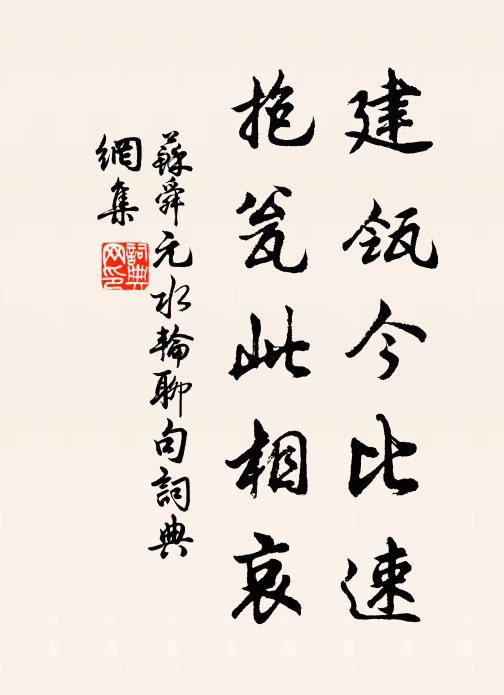 建瓴今比速
抱瓮此相哀
蘇舜元水輪聊句詞典
網集
詞典網印